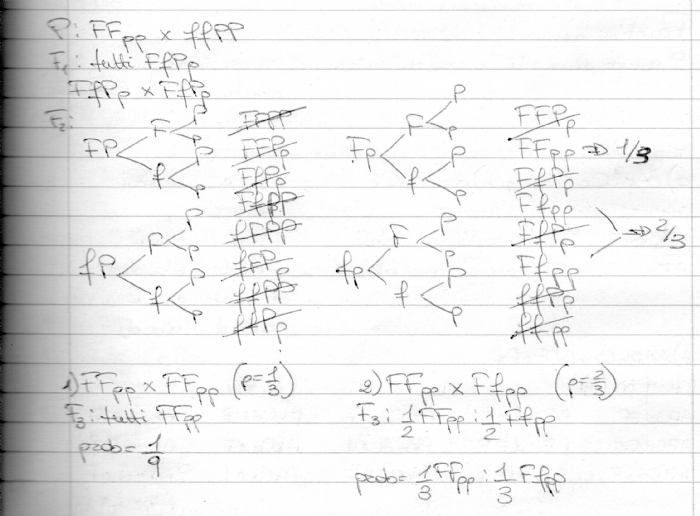 P: FFpp x ffPP
F1: tutti FfPp
FfPp x FfPp
F2:
FP F P p f P p
FFPP
FFPp
FfPP
FfPp
fP F P p f P p
fFPP
fFPp
ffPP
ffPp
Fp F P p f P p
FFPp
FFpp => 1/3
FfPp
Ffpp
fp F P p f P p
FfPp
Ffpp => 2/3
ffPp
ffpp
1) FFpp x FFpp (p=1/3)
F3: tutti FFpp
prob= 1/9
2) FFpp x Ffpp (p=2/3)
F3: 1/2 FFpp : 1/2 Ffpp
prob= 1/3 FFpp : 1/3 Ffpp